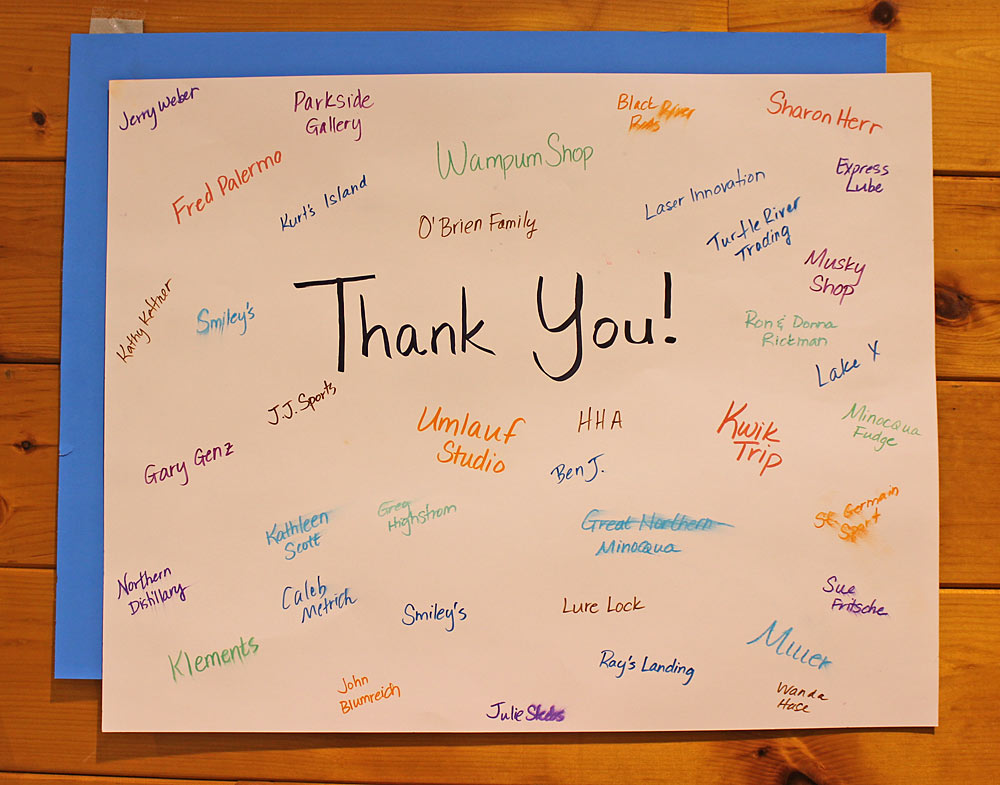 Jerry Weber
Parkside
Gallery
Black River
Rods
Sharon Herr
Wampum Shop
Fred Palermo
Express
Lube
Kurt's Island
Laser Innovation
O'Brien Family
Turtle River
Trading
Musky
Shop
Kathy Kettner
Smiley's
Thank You!
Ron & Donna
Rickman
Lake X
J.J. Sports
Umlauf
Studio
HHA
Kwik
Trip
Minocqua
Fudge
Gary Genz
Ben J.
Kathleen
Scott
Greg
Highstrom
Great Northern
Minocqua
St. Germain
Sport
Northern
Distillary
Caleb
Metrich
Smiley's
Lure Lock
Sue
Fritsche
Klements
Ray's Landing
Miller
John
Blumreich
Julie
Wanda
Hase